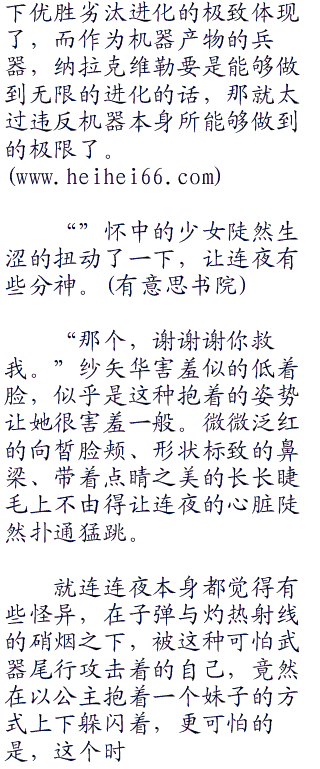 下优胜劣汰进化的极致体现
了，而作为机器产物的兵
器，纳拉克维勒要是能够做
到无限的进化的话，那就太
过违反机器本身所能够做到
的极限了。
(www.heihei66.com)
“”怀中的少女陡然生
涩的扭动了一下，让连夜有
些分神。(有意思书院)
“那个，谢谢谢你救
我。”纱矢华害羞似的低着
脸，似乎是这种抱着的姿势
让她很害羞一般。微微泛红
的向皙脸颊、形状标致的鼻
梁、带着点睛之美的长长睫
毛上不由得让连夜的心脏陡
然扑通猛跳。
就连连夜本身都觉得有
些怪异，在子弹与灼热射线
的硝烟之下，被这种可怕武
器尾行攻击着的自己，竟然
在以公主抱着一个妹子的方
式上下躲闪着，更可怕的
是，这个时